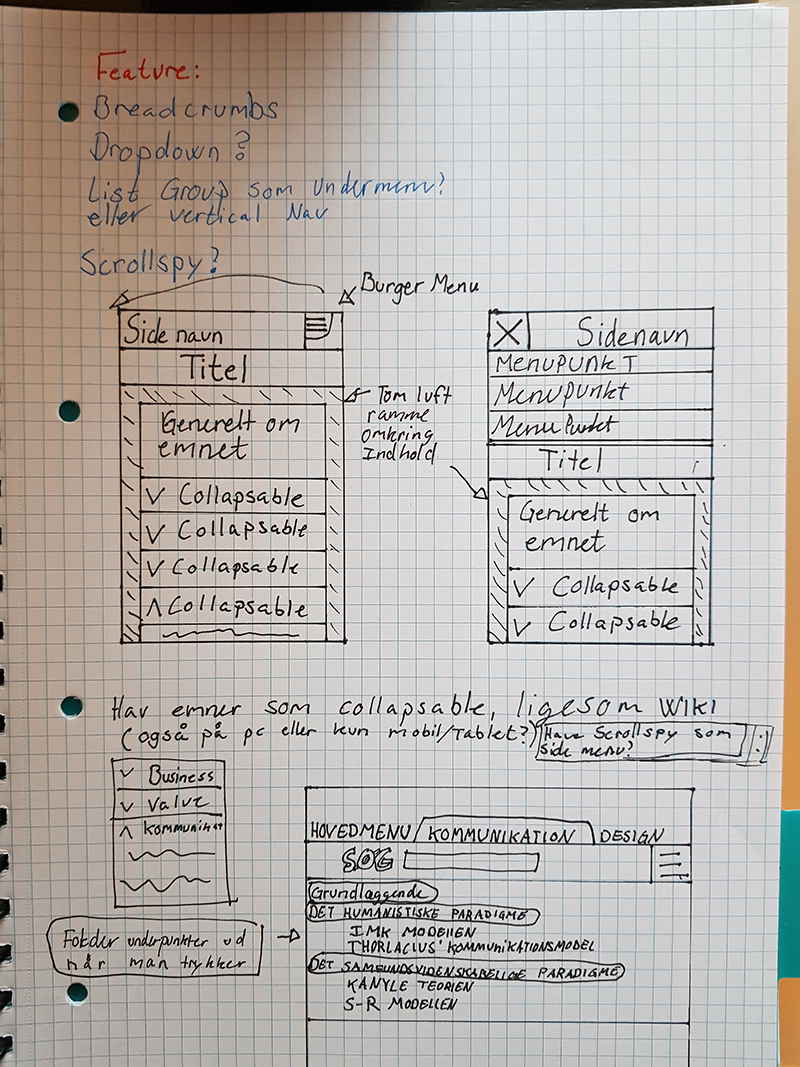 Feature:
Breadcrumbs
Dropdown?
List Group som Undermenu?
eller vertical Nav
Scrollspy?
Burger Menu
Side navn
Titel
Generelt om
emnet
V Collapsable
V Collapsable
V Collapsable
Λ Collapsable
Tom luft
ramme
omkring
Indhold
X Sidenavn
Menupunkt
Menupunkt
Menu Punkt
Titel
Generelt om
emnet
V Collapsable
V Collapsable
Hav emner som collapsable, ligesom Wiki
(også på pc eller kun mobil/Tablet?)
Have Scrollspy som
side menu?
V Business
V Value
Λ Kommunikat
Folder underpunkter ud
når man trykker
HOVEDMENU KOMMUNIKATION DESIGN
SØG
Grundlæggende
DET HUMANISTISKE PARADIGME
IMK MODELLEN
THORLACIUS' KOMMUNIKATIONSMODEL
DET SAMFUNDSVIDENSKABELIGE PARADIGME
KANYLE TEORIEN
S-R MODELLEN